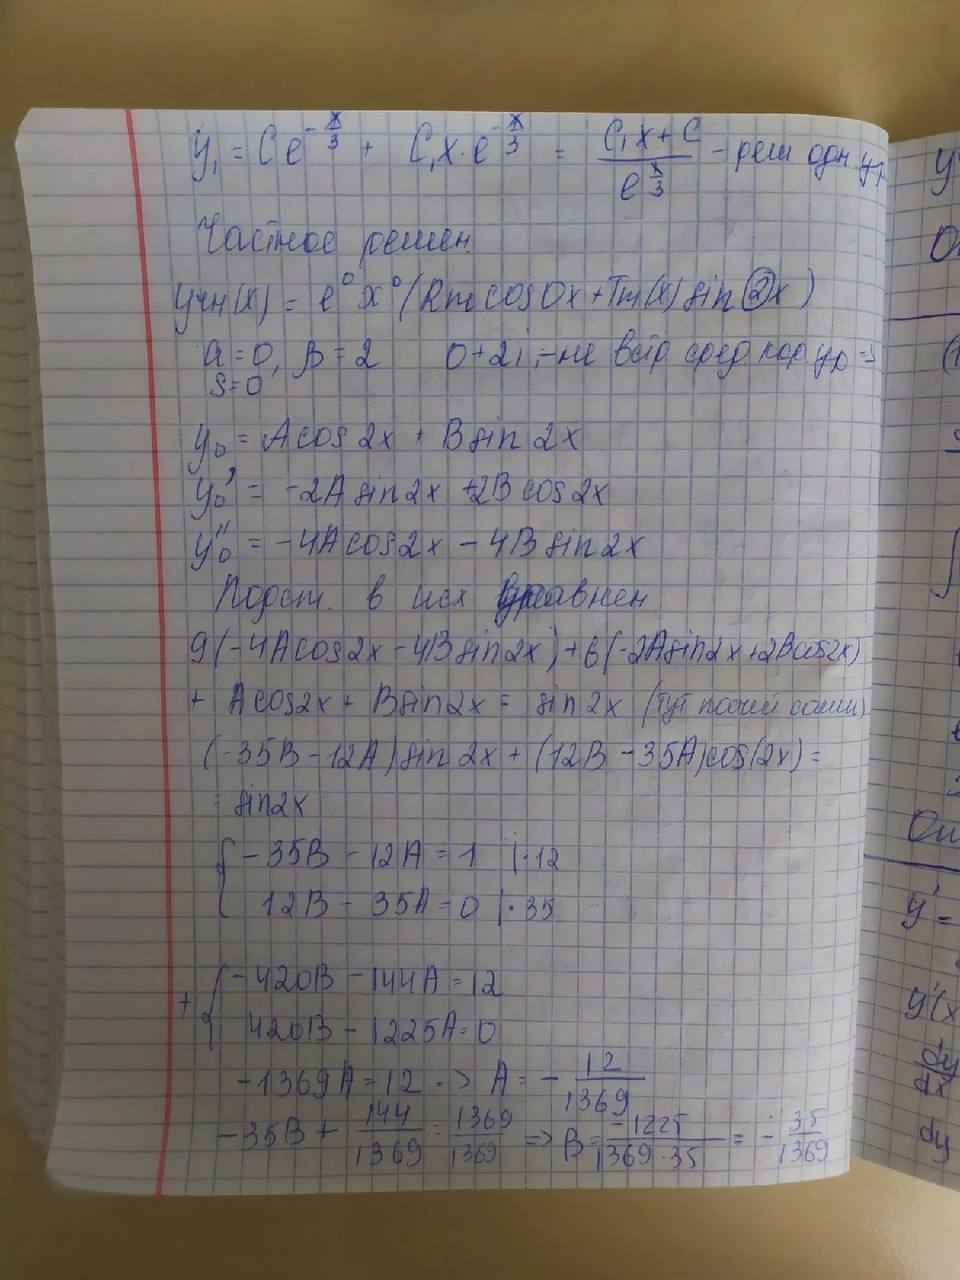 y₁ = Ce^{-x/3} + C₁x·e^{-x/3} = (C₁x+C)/e^{x/3} - реш одн ур
Частное решен.
yчн(x) = e⁰x⁰(Rm cos0x + Tm(x) sin②x)
a=0, β=2 0+2i -не встр сред кор. ур =>
S=0
y₀ = Acos2x + Bsin2x
y₀' = -2Asin2x +2Bcos2x
y₀'' = -4Acos2x - 4Bsin2x
Подст. в исх уравнен
9(-4Acos2x - 4Bsin2x) + 6(-2Asin2x+2Bcos2x)
+ Acos2x + Bsin2x = sin2x (тут
(-35B-12A)sin2x + (12B-35A)cos(2x) =
= sin2x
{ -35B - 12A = 1 |·12
12B - 35A = 0 |·35
+ { -420B - 144A = 12
420B - 1225A = 0
-1369A = 12 -> A = -12/1369
-35B + 144/1369 = 1369/1369 => B = -1225/1369·35 = -35/1369
y
(1
От
y' =
y'(x
dy/dx
dy